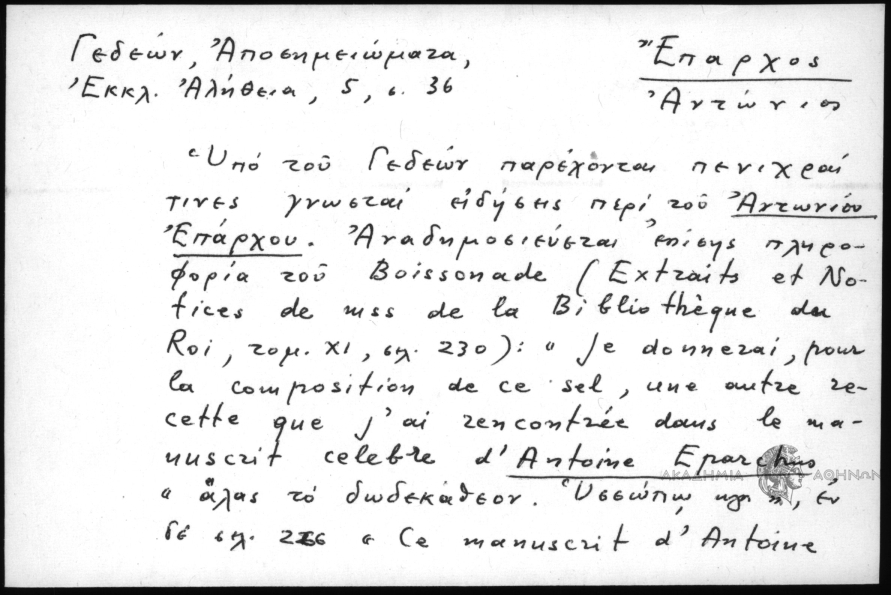 Γεδεών, Ἀποσημειώματα,
Ἐκκλ. Ἀλήθεια, 5, σ. 36
Ἔπαρχος
Ἀντώνιος
Ὑπό τοῦ Γεδεών παρέχονται πενιχραί
τινες γνωσταί εἰδήσεις περί τοῦ Ἀντωνίου
Ἐπάρχου. Ἀναδημοσιεύεται ἐπίσης πληρο-
φορία τοῦ Boissonade (Extraits et No-
tices de mss de la Bibliothèque du
Roi, τομ. XI, σελ. 230): " Je donnerai, pour
la composition de ce sel, une autre re-
cette que j'ai rencontrée dans le ma-
nuscrit celebre d'Antoine Eparchus
ΑΚΑΔΗΜΙΑ ΑΘΗΝΩΝ
" ἅλας τό δωδεκάθεον. Ὑσσώπῳ , ἐν
δέ σελ. " Ce manuscrit d'Antoine